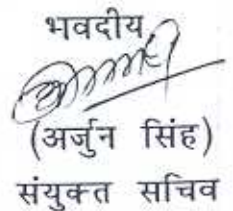 भवदीय
(अर्जुन सिंह)
संयुक्त सचिव